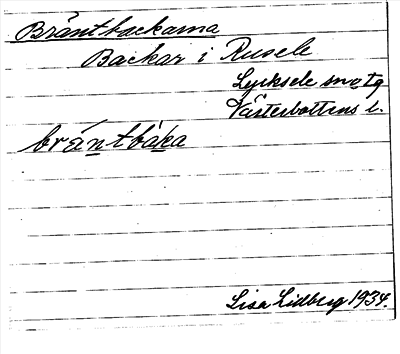 Bräntbackarna
Backar i Rusele
Lycksele sn o tg
Västerbottens l.
brántbàka
Lisa Lidberg 1934.